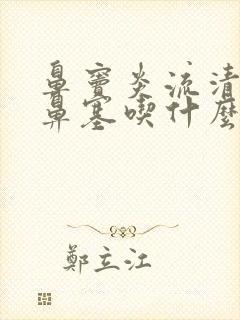 鼻窦炎流清
鼻塞喫什麼
鄭立江